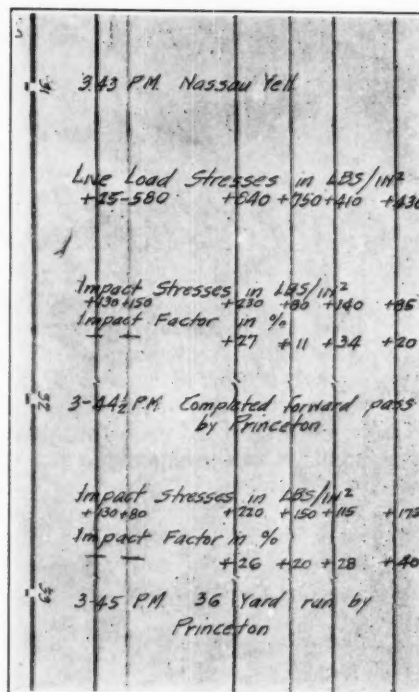 3.43 P.M. Nassau Yell
Live Load Stresses in LBS/IN²
+25 -580 +840 +750 +410 +430
Impact Stresses in LBS/IN²
+130 +150 +230 +80 +140 +85
Impact Factor in %
+27 +11 +34 +20
32 3-44½ P.M. Completed forward pass
by Princeton.
Impact Stresses in LBS/IN²
+130 +80 +220 +150 +115 +172
Impact Factor in %
+26 +20 +28 +40
3-45 P.M. 36 Yard run by
Princeton